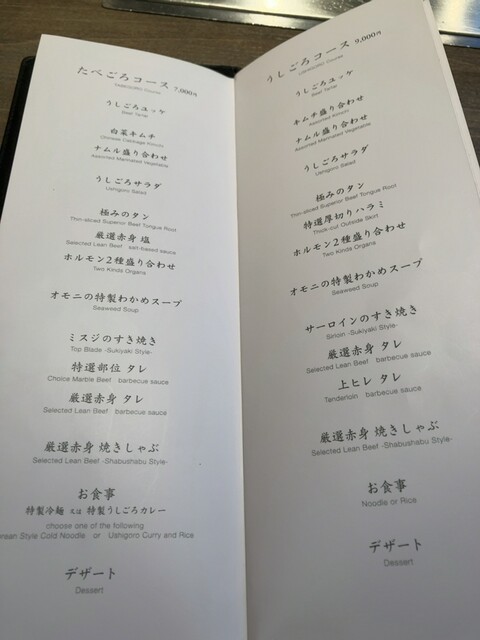 たべごろコース 7,000円
TABEGORO Course
うしごろユッケ
Beef Tartar
白菜キムチ
Chinese Cabbage Kimchi
ナムル盛り合わせ
Assorted Marinated Vegetable
うしごろサラダ
Ushigoro Salad
極みのタン
Thin-sliced Superior Beef Tongue Root
厳選赤身 塩
Selected Lean Beef salt-based sauce
ホルモン2種盛り合わせ
Two Kinds Organs
オモニの特製わかめスープ
Seaweed Soup
ミスジのすき焼き
Top Blade -Sukiyaki Style-
特選部位 タレ
Choice Marble Beef barbecue sauce
厳選赤身 タレ
Selected Lean Beef barbecue sauce
厳選赤身 焼きしゃぶ
Selected Lean Beef -Shabushabu Style-
お食事
特製冷麺 又は 特製うしごろカレー
choose one of the following
rean Style Cold Noodle or Ushigoro Curry and Rice
デザート
Dessert
うしごろコース 9,000円
USHIGORO Course
うしごろユッケ
Beef Tartar
キムチ盛り合わせ
Assorted Kimchi
ナムル盛り合わせ
Assorted Marinated Vegetable
うしごろサラダ
Ushigoro Salad
極みのタン
Thin-sliced Superior Beef Tongue Root
特選厚切りハラミ
Thick-cut Outside Skirt
ホルモン2種盛り合わせ
Two Kinds Organs
オモニの特製わかめスープ
Seaweed Soup
サーロインのすき焼き
Sirloin -Sukiyaki Style-
厳選赤身 タレ
Selected Lean Beef barbecue sauce
上ヒレ タレ
Tenderloin barbecue sauce
厳選赤身 焼きしゃぶ
Selected Lean Beef -Shabushabu Style-
お食事
Noodle or Rice
デザート
Dessert